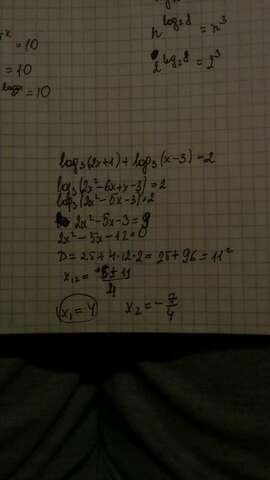 = 10
n^log₂8 = n³
= 10
2^log₂8 = 2³
= 10
log₃(2x+1) + log₃(x-3) = 2
log₃(2x²-6x+x-3) = 2
log₃(2x²-5x-3) = 2
2x²-5x-3 = 9
2x²-5x-12=0
D = 25+4·12·2 = 25+96 = 11²
x₁,₂ = (5±11)/4
x₁ = 4 x₂ = -7/4